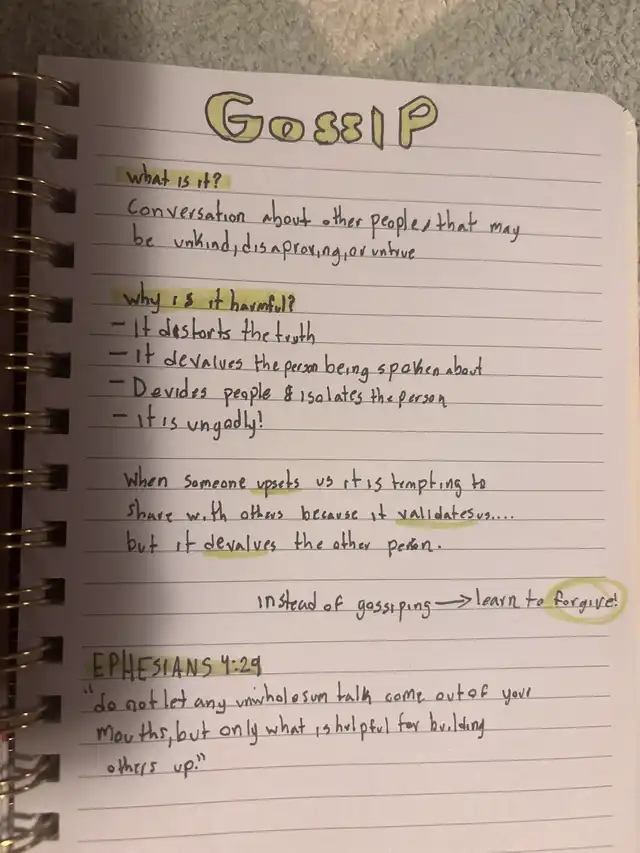 GOSSIP
what is it?
Conversation about other people, that may
be unkind, disaproving, or untrue
why is it harmful?
- It destorts the truth
- It devalues the person being spoken about
- Devides people & isolates the person
- it is ungodly!
when someone upsets us it is tempting to
share with others because it validates us....
but it devalves the other person.
instead of gossiping → learn to forgive!
EPHESIANS 4:29
"do not let any unwholesum talk come out of your
mouths, but only what is helpful for building
others up."